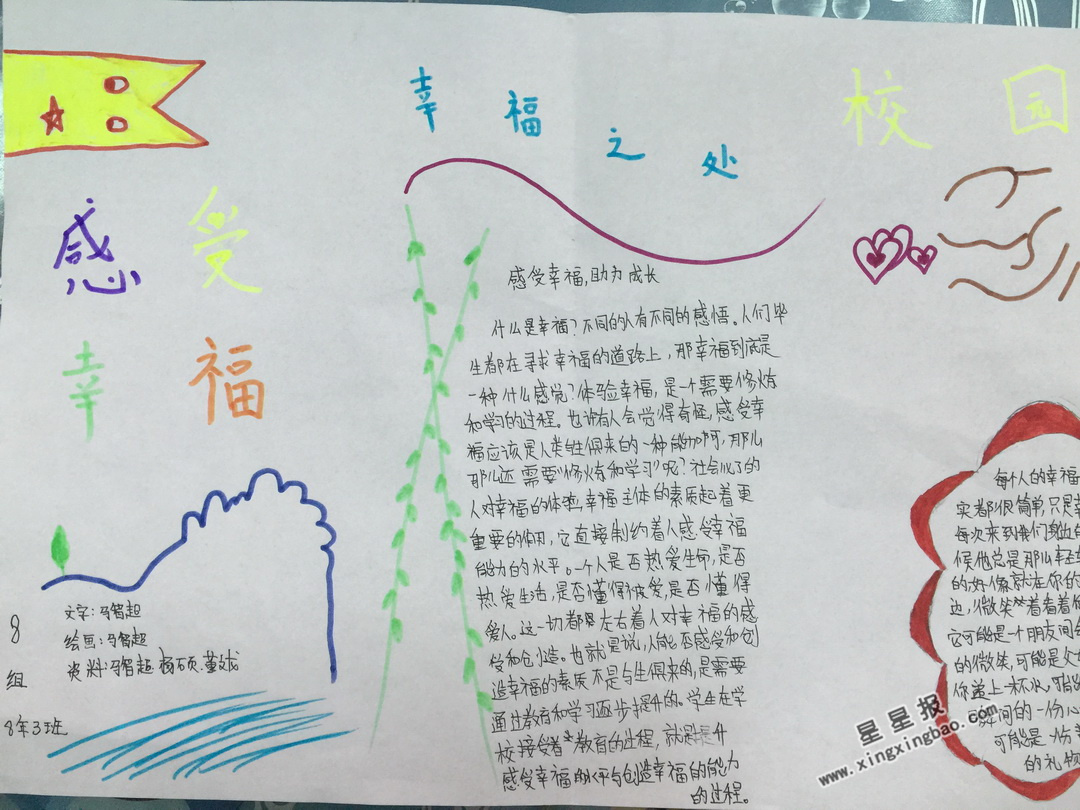 幸福之处
校园
感受
幸福
感受幸福,助为成长
什么是幸福?不同的人有不同的感悟。人们毕
生都在寻求幸福的道路上,那幸福到底是
一种什么感觉?体验幸福,是一个需要修炼
和学习的过程。也许有人会觉得奇怪,感受幸
福应该是人类与生俱来的一种能力啊,那么
那么还需要"修炼和学习"呢?社会化了的
人对幸福的体验,幸福主体的素质起着更
重要的作用,它直接制约着人感受幸福
能力的水平。一个人是否热爱生命,是否
热爱生活,是否懂得被爱,是否懂得
爱人。这一切都左右着人对幸福的感
受和创造。也就是说,人能否感受和创
造幸福的素质不是与生俱来的,是需要
通过教育和学习逐步提升的。学生在学
校接受着教育的过程,就是提升
感受幸福的水平与创造幸福的能力
的过程。
每个人的幸福
实都很简单,只是
每次来到我们身边的
候他总是那么轻
的,好像就在你的
边,微笑着看着你
它可能是一个朋友间
的微笑,可能是父
你递上一杯水,可能
瞬间的一份心
可能是一份
的礼物
8
组
文字:马智超
绘画:马智超
资料:马智超.杨硕.董
8年3班
星星报
www.xingxingbao.com